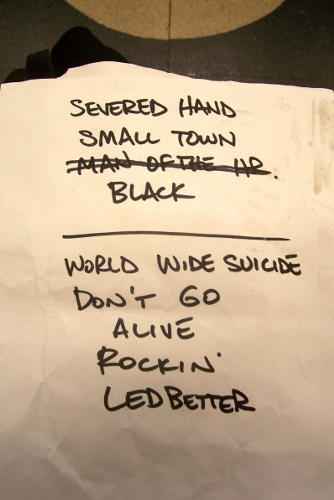 SEVERED HAND
SMALL TOWN
MAN OF THE HR.
BLACK
WORLD WIDE SUICIDE
DON'T GO
ALIVE
ROCKIN'
LEDBETTER